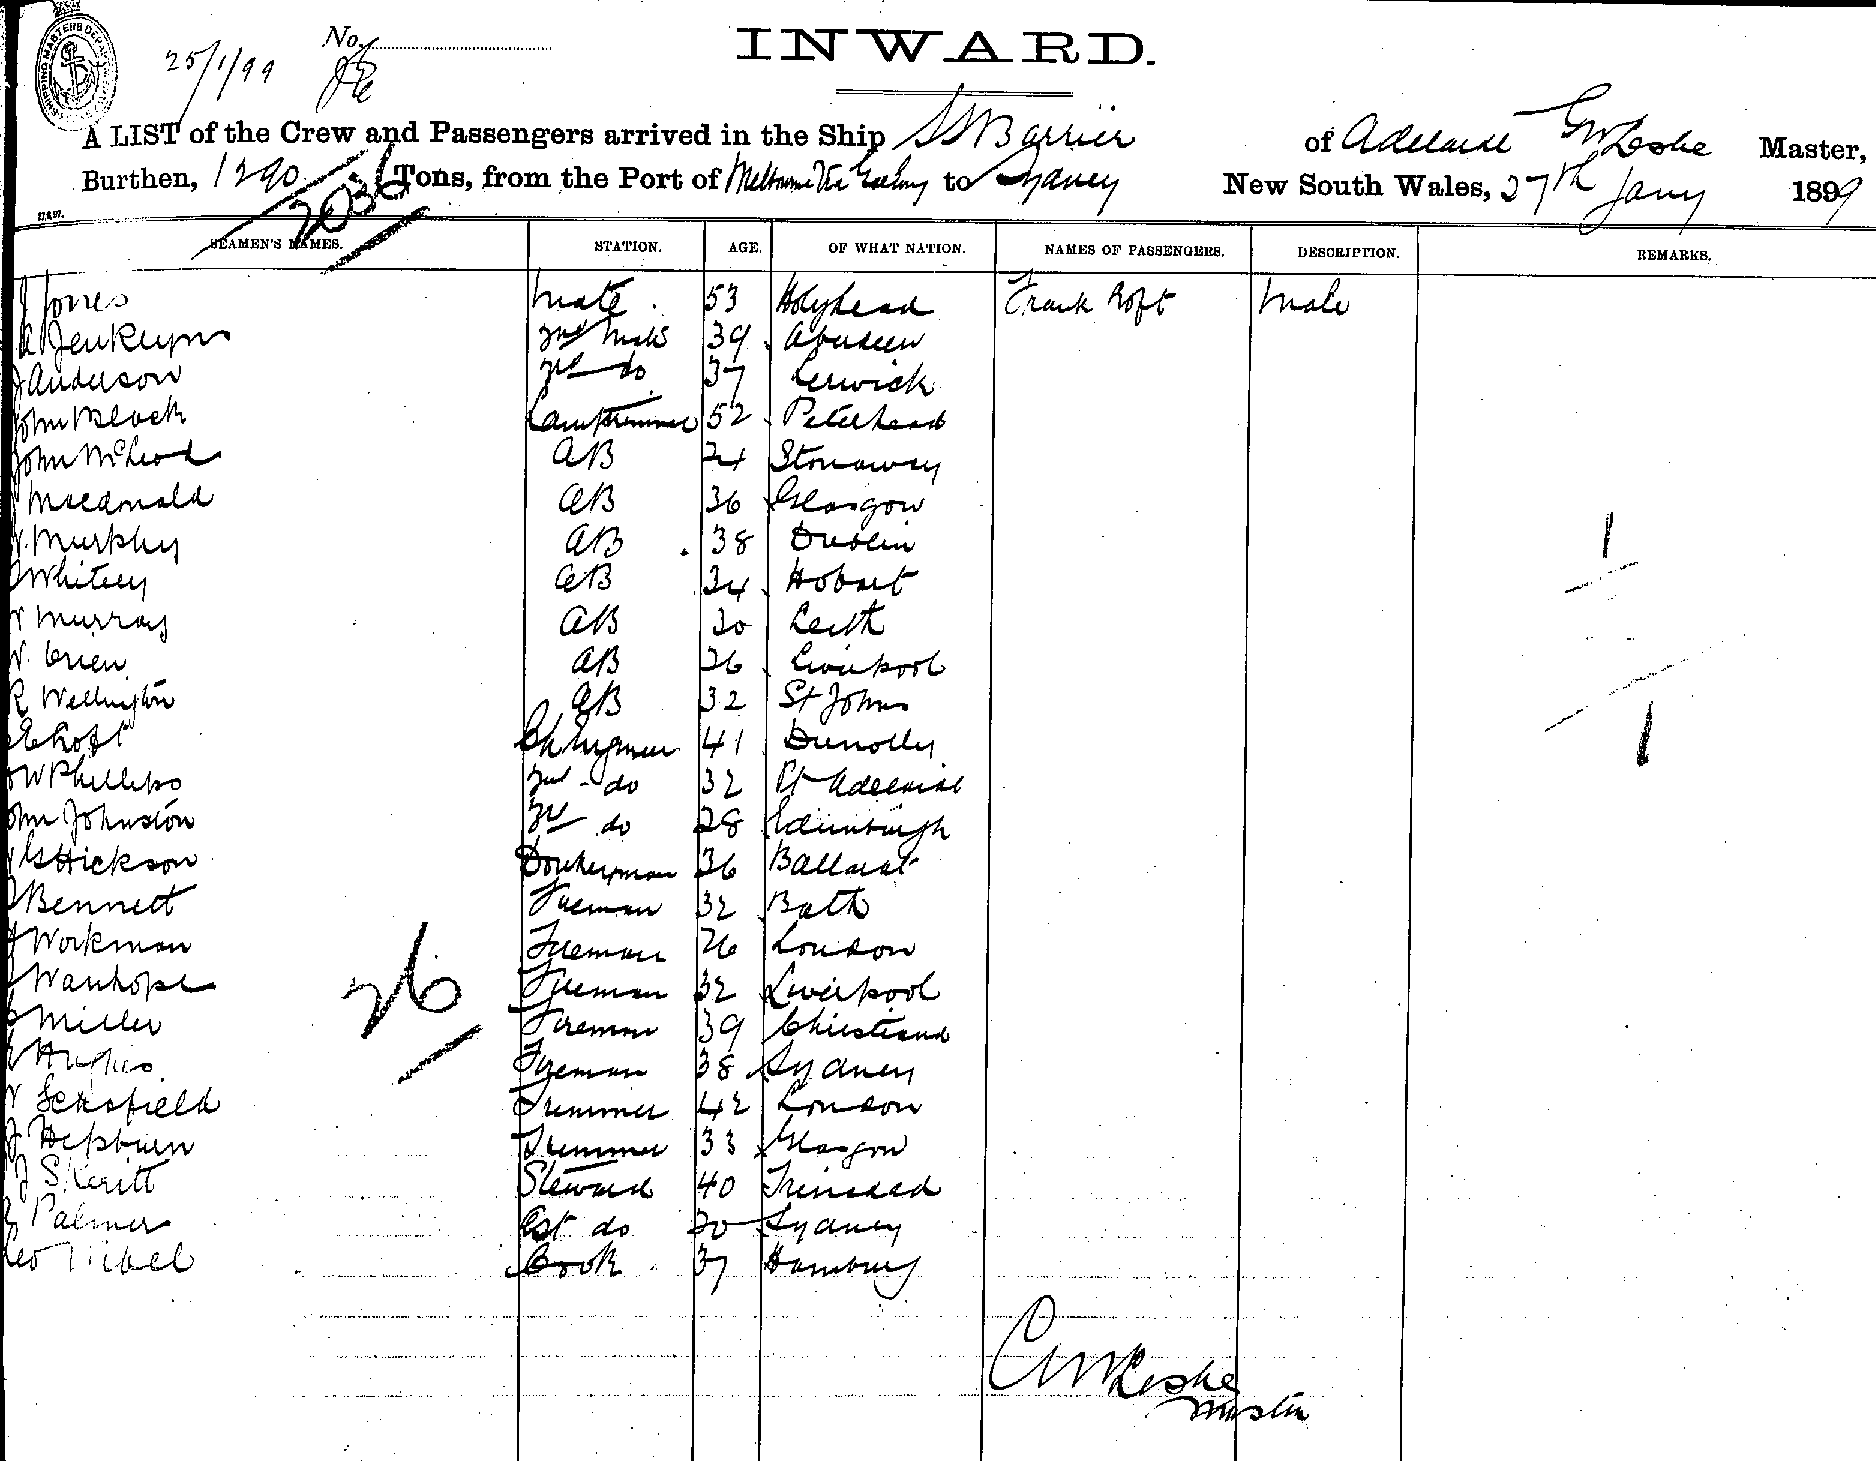 SHIPPING MASTERS DEPARTMENT
25/1/99 No.
INWARD.
A LIST of the Crew and Passengers arrived in the Ship SS Barrier of Adelaide Leske Master,
Burthen, 1290 2036 Tons, from the Port of Melbourne to Sydney New South Wales, 27th Jany 1899
SEAMEN'S NAMES. STATION. AGE. OF WHAT NATION. NAMES OF PASSENGERS. DESCRIPTION. REMARKS.
J Jones Mate 53 Holyhead Frank Roft Male
A Jenkyns 2nd Mate 39 Aberdeen
J Anderson 37 Lerwick
John Black Lamptrimmer 52 Peterhead
John McLeod AB 24 Stonaway
Macdonald AB 36 Glasgow
Murphy AB 38 Dublin
Whitely AB 34 Hobart
Murray AB 30 Leith
AB 26 Liverpool
R Wellington AB 32 St Johns
Roft Ch Engineer 41 Dunolly
W Phillips 2nd do 32 Pt Adelaide
John Johnston 3rd do 28 Edinburgh
Hickson Donkeyman 36 Ballarat
Bennett Fireman 32 Bath
Workman Fireman 26 London
Wauhope Fireman 32 Liverpool
Miller Fireman 39 Christiana
Hughes Fireman 38 Sydney
26
Trimmer 42 London
J Hepburn Trimmer 33 Glasgow
J Skeritt Steward 40 Trinidad
Palmer Ast do 20 Sydney
Geo Cook 37 Hamburg
Leske
Master